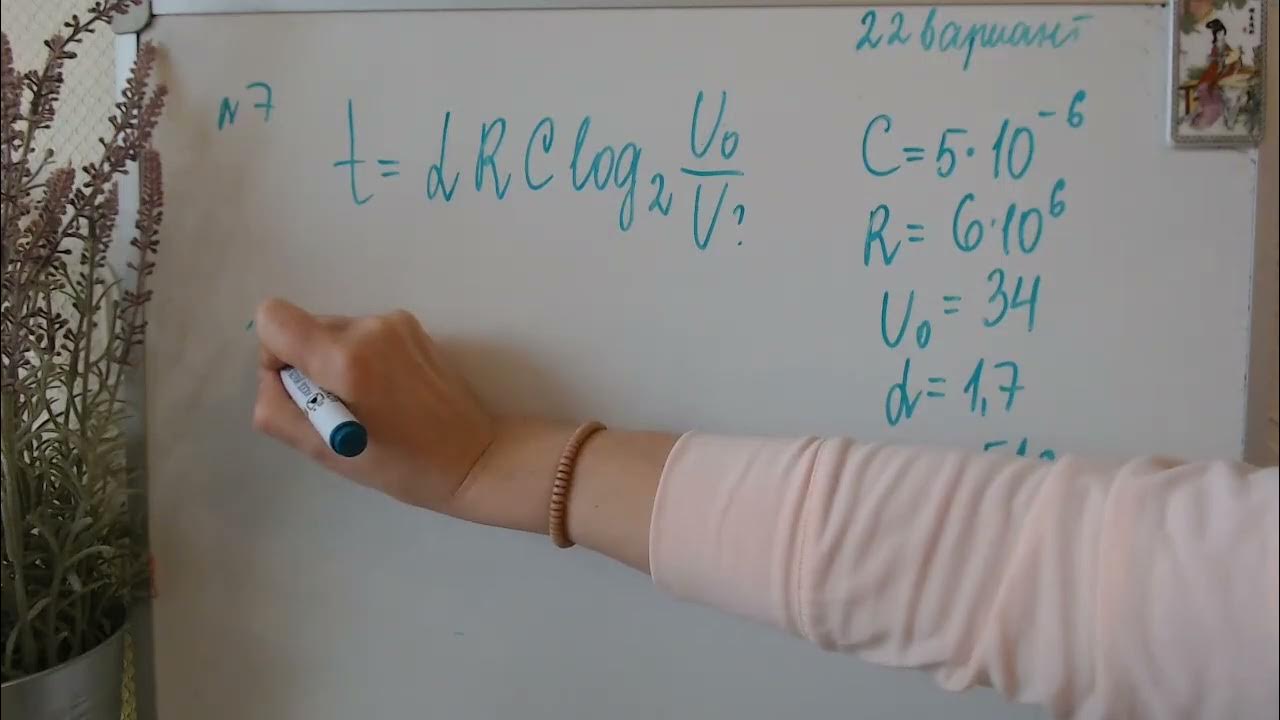 22 вариант
№7
t = α R C log₂ U₀/U?
C = 5·10⁻⁶
R = 6·10⁶
U₀ = 34
α = 1,7